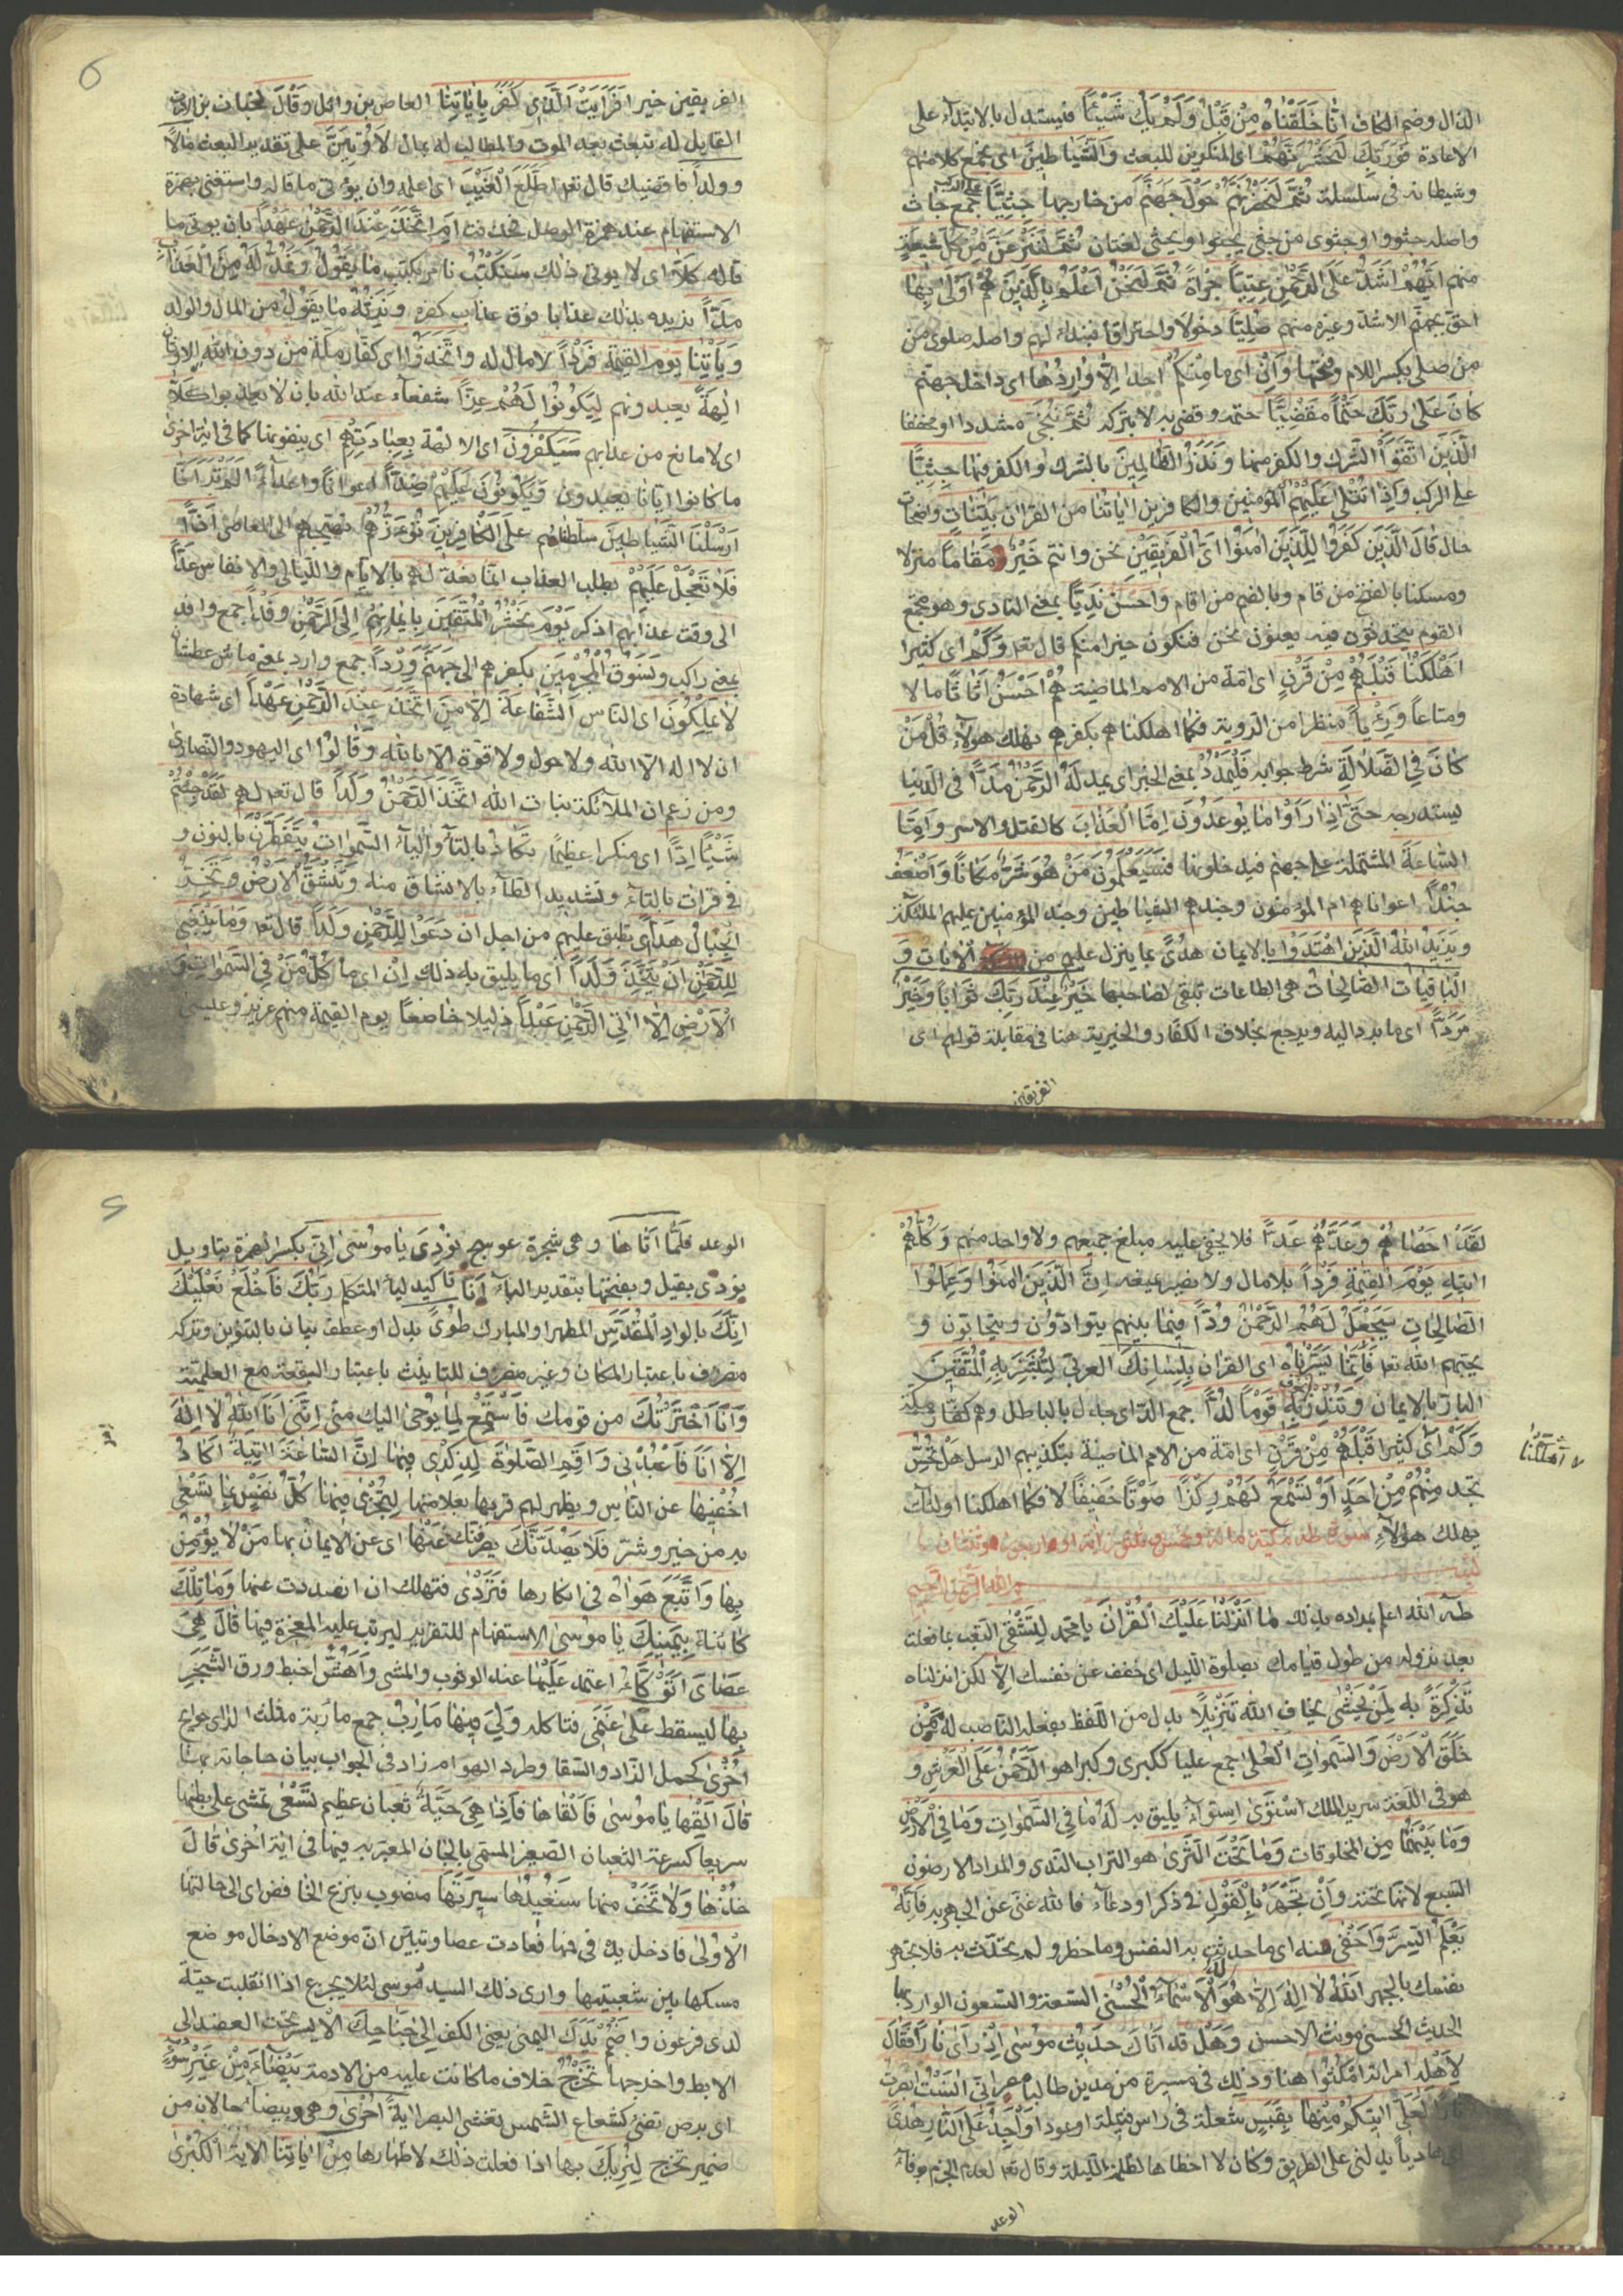 الذال وضم الكاف انّا خَلَقْنَاهُ مِنْ قَبْلُ وَلَمْ يَكُ شَيْئًا فيستدل بالابتداء على
الاعادة فَوَرَبِّكَ لَنَحْشُرَنَّهُمْ اى المنكرين للبعث وَالشَّيَاطِينَ اى نجمع كلا منهم
وشيطانه فى سلسلة ثُمَّ لَنُحْضِرَنَّهُمْ حَوْلَ جَهَنَّمَ من خارجها جِثِيًّا على الركب جمع جاث
واصله جثووا وجثوى من جثى يجثوا ويجثى لغتان ثُمَّ لَنَنْزِعَنَّ مِنْ كُلِّ شِيعَةٍ
منهم اَيُّهُمْ اَشَدُّ عَلَى الرَّحْمٰنِ عِتِيًّا جراة ثُمَّ لَنَحْنُ اَعْلَمُ بِالَّذِينَ هُمْ اَوْلٰى بِهَا
احق بجهنم الاشد وغيره منهم صِلِيًّا دخولا واحتراقا فنبداء لهم واصله صلوى من
من صلى بكسر اللام وفتحها وَاِنْ اى ما مِنْكُمْ احد اِلَّا وَارِدُهَا اى داخل جهنم
كَانَ عَلٰى رَبِّكَ حَتْمًا مَقْضِيًّا حتمه وقضى به لا يتركه ثُمَّ نُنَجِّى مشددا او مخففا
الَّذِينَ اتَّقَوْا الشرك والكفر منها وَنَذَرُ الظَّالِمِينَ بالشرك والكفر فيها جِثِيًّا
على الركب وَاِذَا تُتْلٰى عَلَيْهِمْ المؤمنين والكافرين اٰيَاتُنَا من القران بَيِّنَاتٍ واضحات
حال قَالَ الَّذِينَ كَفَرُوا لِلَّذِينَ اٰمَنُوا اَىُّ الْفَرِيقَيْنِ نحن وانتم خَيْرٌ مَقَامًا منزلا
ومسكنا بالفتح من قام وبالضم من اقام وَاَحْسَنُ نَدِيًّا بمعنى النادى وهو مجمع
القوم يتحدثون فيه يعنون نحن فنكون خيرا منكم قال تعه وَكَمْ اى كثيرا
اَهْلَكْنَا قَبْلَهُمْ مِنْ قَرْنٍ اى امة من الامم الماضية هُمْ اَحْسَنُ اَثَاثًا مالا
ومتاعا وَرِءْيًا منظرا من الروية فكما اهلكناهم بكفرهم نهلك هولاء قُلْ مَنْ
كَانَ فِى الضَّلَالَةِ شرط جوابه فَلْيَمْدُدْ بمعنى الخبر اى يمد لَهُ الرَّحْمٰنُ مَدًّا فى الدنيا
يستدرجه حَتّٰى اِذَا رَاَوْا مَا يُوعَدُونَ اِمَّا الْعَذَابَ كالقتل والاسر وَاِمَّا
السَّاعَةَ المشتملة على جهنم فيدخلونها فَسَيَعْلَمُونَ مَنْ هُوَ شَرٌّ مَكَانًا وَاَضْعَفُ
جُنْدًا اعوانا هم ام المؤمنون وجندهم الشياطين وجند المؤمنين عليهم الملئكة
وَيَزِيدُ اللّٰهُ الَّذِينَ اهْتَدَوْا بالايمان هُدًى بما ينزل عليهم من الايات وَ
الْبَاقِيَاتُ الصَّالِحَاتُ هى الطاعات تبقى لصاحبها خَيْرٌ عِنْدَ رَبِّكَ ثَوَابًا وَخَيْرٌ
مَرَدًّا اى ما يرد اليه ويرجع بخلاف الكفار والخيرية هنا فى مقابلة قولهم اى
الفريقين
الفريقين خير اَفَرَاَيْتَ الَّذِى كَفَرَ بِاٰيَاتِنَا العاص بن وائل وَقَالَ لخباب بن الارت
القايل له تبعث بعد الموت والمطالب له بمال لَاُوتَيَنَّ على تقدير البعث مَالًا
وَوَلَدًا فاقضيك قال تعه اَطَّلَعَ الْغَيْبَ اى اعلمه وان يؤتى ما قاله واستغنى بهمزة
الاستفهام عند همزة الوصل فحذفت اَمِ اتَّخَذَ عِنْدَ الرَّحْمٰنِ عَهْدًا بان يوتى ما
قاله كَلَّا اى لا يوتى ذلك سَنَكْتُبُ نامر بكتب مَا يَقُولُ وَنَمُدُّ لَهُ مِنَ الْعَذَابِ
مَدًّا نزيده بذلك عذابا فوق عذاب كفره وَنَرِثُهُ مَا يَقُولُ من المال والولد
وَيَاْتِينَا يوم القيمة فَرْدًا لا مال له وَاتَّخَذُوا اى كفار مكة مِنْ دُونِ اللّٰهِ الاوثان
اٰلِهَةً يعبدونهم لِيَكُونُوا لَهُمْ عِزًّا شفعاء عند الله بان لا يعذبوا كَلَّا
اى لا مانع من عذابهم سَيَكْفُرُونَ اى الالهة بِعِبَادَتِهِمْ اى ينفونها كما فى اية اخرى
ما كانوا ايانا يعبدون وَيَكُونُونَ عَلَيْهِمْ ضِدًّا اعوانا واعداء اَلَمْ تَرَ اَنَّا
اَرْسَلْنَا الشَّيَاطِينَ سلطناهم عَلَى الْكَافِرِينَ تَؤُزُّهُمْ تهيجهم الى المعاصى اَزًّا
فَلَا تَعْجَلْ عَلَيْهِمْ بطلب العذاب انما نعد لهم بالايام والليالى والانفاس عَدًّا
الى وقت عذابهم اذكر يَوْمَ نَحْشُرُ الْمُتَّقِينَ بايمانهم اِلَى الرَّحْمٰنِ وَفْدًا جمع وافد
بمعنى راكب وَنَسُوقُ الْمُجْرِمِينَ بكفرهم اِلٰى جَهَنَّمَ وِرْدًا جمع وارد بمعنى ماش عطشان
لَا يَمْلِكُونَ اى الناس الشَّفَاعَةَ اِلَّا مَنِ اتَّخَذَ عِنْدَ الرَّحْمٰنِ عَهْدًا اى شهادة
ان لا اله الا الله ولا حول ولا قوة الا بالله وَقَالُوا اى اليهود والنصارى
ومن زعم ان الملائكة بنات الله اتَّخَذَ الرَّحْمٰنُ وَلَدًا قال تعه لهم لَقَدْ جِئْتُمْ
شَيْئًا اِدًّا اى منكرا عظيما تَكَادُ بالتاء والياء السَّمٰوَاتُ يَنْفَطِرْنَ بالنون و
فى قراة بالتاء وتشديد الطاء بالانشقاق مِنْهُ وَتَنْشَقُّ الْاَرْضُ وَتَخِرُّ
الْجِبَالُ هَدًّا اى تطبق عليهم من اجل اَنْ دَعَوْا لِلرَّحْمٰنِ وَلَدًا قال تعه وَمَا يَنْبَغِى
لِلرَّحْمٰنِ اَنْ يَتَّخِذَ وَلَدًا اى ما يليق به ذلك اِنْ اى ما كُلُّ مَنْ فِى السَّمٰوَاتِ وَ
الْاَرْضِ اِلَّا اٰتِى الرَّحْمٰنِ عَبْدًا ذليلا خاضعا يوم القيمة منهم عزير وعيسى
لَقَدْ اَحْصَاهُمْ وَعَدَّهُمْ عَدًّا فلا يخفى عليه مبلغ جميعهم ولا واحد منهم وَكُلُّهُمْ
اٰتِيهِ يَوْمَ الْقِيٰمَةِ فَرْدًا بلا مال ولا نصير يمنعه اِنَّ الَّذِينَ اٰمَنُوا وَعَمِلُوا
الصَّالِحَاتِ سَيَجْعَلُ لَهُمُ الرَّحْمٰنُ وُدًّا فيما بينهم يتوادون ويتحابون و
يحبهم الله تعه فَاِنَّمَا يَسَّرْنَاهُ اى القران بِلِسَانِكَ العربى لِتُبَشِّرَ بِهِ الْمُتَّقِينَ
النار بالايمان وَتُنْذِرَ تخوف بِهِ قَوْمًا لُدًّا جمع الد اى جدل بالباطل وهم كفار مكة
وَكَمْ اى كثيرا اهلكنا قَبْلَهُمْ مِنْ قَرْنٍ اى امة من الامم الماضية بتكذيبهم الرسل هَلْ تُحِسُّ
تجد مِنْهُمْ مِنْ اَحَدٍ اَوْ تَسْمَعُ لَهُمْ رِكْزًا صوتا خفيفا لا فكما اهلكنا اولئك
نهلك هولاء سورة طه مكية مائة وخمس وثلثون اية او واربعون وثنتان
الله الرحمن الرحيم
طه الله اعلم بمراده بذلك مَا اَنْزَلْنَا عَلَيْكَ الْقُرْاٰنَ يا محمد لِتَشْقٰى التعب بما فعلت
بعد نزوله من طول قيامك بصلوة الليل اى خفف عن نفسك اِلَّا لكن انزلناه
تَذْكِرَةً به لِمَنْ يَخْشٰى يخاف الله تَنْزِيلًا بدل من اللفظ بفعله الناصب له مِمَّنْ
خَلَقَ الْاَرْضَ وَالسَّمٰوَاتِ الْعُلٰى جمع عليا ككبرى وكبر هو الرَّحْمٰنُ عَلَى الْعَرْشِ و
هو فى اللغة سرير الملك اسْتَوٰى استواء يليق به لَهُ مَا فِى السَّمٰوَاتِ وَمَا فِى الْاَرْضِ
وَمَا بَيْنَهُمَا من المخلوقات وَمَا تَحْتَ الثَّرٰى هو التراب الندى والمراد الارضون
السبع لانها تحته وَاِنْ تَجْهَرْ بِالْقَوْلِ فى ذكر او دعاء فالله غنى عن الجهر به فَاِنَّهُ
يَعْلَمُ السِّرَّ وَاَخْفٰى منه اى ما حدثت به النفس وما خطر ولم يحدث به فلا تجهر
نفسك بالجهر اَللّٰهُ لَا اِلٰهَ اِلَّا هُوَ لَهُ الْاَسْمَاءُ الْحُسْنٰى التسعة والتسعون الوارد بها
الحديث الحسنى مونث الاحسن وَهَلْ قد اَتَاكَ حَدِيثُ مُوسٰى اِذْ رَاٰى نَارًا فَقَالَ
لِاَهْلِهِ امراته امْكُثُوا هنا وذلك فى مسيره من مدين طالبا مصر اِنِّى اٰنَسْتُ ابصرت
نَارًا لَعَلِّى اٰتِيكُمْ مِنْهَا بِقَبَسٍ شعلة فى راس فتيلة او عود اَوْ اَجِدُ عَلَى النَّارِ هُدًى
اى هاديا يدلنى على الطريق وكان لا اخطاها لظلمة الليلة وقال تعه لعدم الجزم بوفاء
الوعد
اهلكنا
الوعد فَلَمَّا اَتَاهَا وهى شجرة عوسج نُودِىَ يَا مُوسٰى اِنِّى بكسر الهمزة بتاويل
نودى بقيل وبفتحها بتقدير الباء اَنَا تاكيد لياء المتكلم رَبُّكَ فَاخْلَعْ نَعْلَيْكَ
اِنَّكَ بِالْوَادِ الْمُقَدَّسِ المطهر او المبارك طُوًى بدل او عطف بيان بالتنوين وتركه
مصروف باعتبار المكان وغير مصروف للتانيث باعتبار البقعة مع العلمية
وَاَنَا اخْتَرْتُكَ من قومك فَاسْتَمِعْ لِمَا يُوحٰى اليك منى اِنَّنِى اَنَا اللّٰهُ لَا اِلٰهَ
اِلَّا اَنَا فَاعْبُدْنِى وَاَقِمِ الصَّلٰوةَ لِذِكْرِى فيها اِنَّ السَّاعَةَ اٰتِيَةٌ اَكَادُ
اُخْفِيهَا عن الناس ويظهر لهم قربها بعلامتها لِتُجْزٰى فيها كُلُّ نَفْسٍ بِمَا تَسْعٰى
به من خير وشر فَلَا يَصُدَّنَّكَ يصرفنك عَنْهَا اى عن الايمان بها مَنْ لَا يُؤْمِنُ
بِهَا وَاتَّبَعَ هَوَاهُ فى انكارها فَتَرْدٰى فتهلك ان انصددت عنها وَمَا تِلْكَ
كائنة بِيَمِينِكَ يَا مُوسٰى الاستفهام للتقرير ليرتب عليه المعجزة فيها قَالَ هِىَ
عَصَاىَ اَتَوَكَّؤُ اعتمد عَلَيْهَا عند الوثوب والمشى وَاَهُشُّ اخبط ورق الشجر
بِهَا ليسقط عَلٰى غَنَمِى فتاكله وَلِىَ فِيهَا مَاٰرِبُ جمع ماربة مثلث الراى حوايج
اُخْرٰى كحمل الزاد والسقا وطرد الهوام زاد فى الجواب بيان حاجاته بها
قَالَ اَلْقِهَا يَا مُوسٰى فَاَلْقَاهَا فَاِذَا هِىَ حَيَّةٌ ثعبان عظيم تَسْعٰى تمشى على بطنها
سريعا كسرعة الثعبان الصغير المسمى بالجان المعبر به فيها فى اية اخرى قَالَ
خُذْهَا وَلَا تَخَفْ منها سَنُعِيدُهَا سِيرَتَهَا منصوب بنزع الخافض اى الى حالتها
الْاُولٰى فادخل يده فى فمها فعادت عصا وتبين ان موضع الادخال موضع
مسكها بين شعبتيها وارى ذلك السيد موسى لئلا يجزع اذا انقلبت حية
لدى فرعون وَاضْمُمْ يَدَكَ اليمنى بمعنى الكف اِلٰى جَنَاحِكَ الايسر تحت العضد الى
الابط واخرجها تَخْرُجْ خلاف ما كانت عليه من الادمة بَيْضَاءَ مِنْ غَيْرِ سُوءٍ
اى برص تضئ كشعاع الشمس تغشى البصر اٰيَةً اُخْرٰى وهى وبيضاء حالان من
ضمير تخرج لِنُرِيَكَ بها اذا فعلت ذلك لاظهارها مِنْ اٰيَاتِنَا الاية الْكُبْرٰى